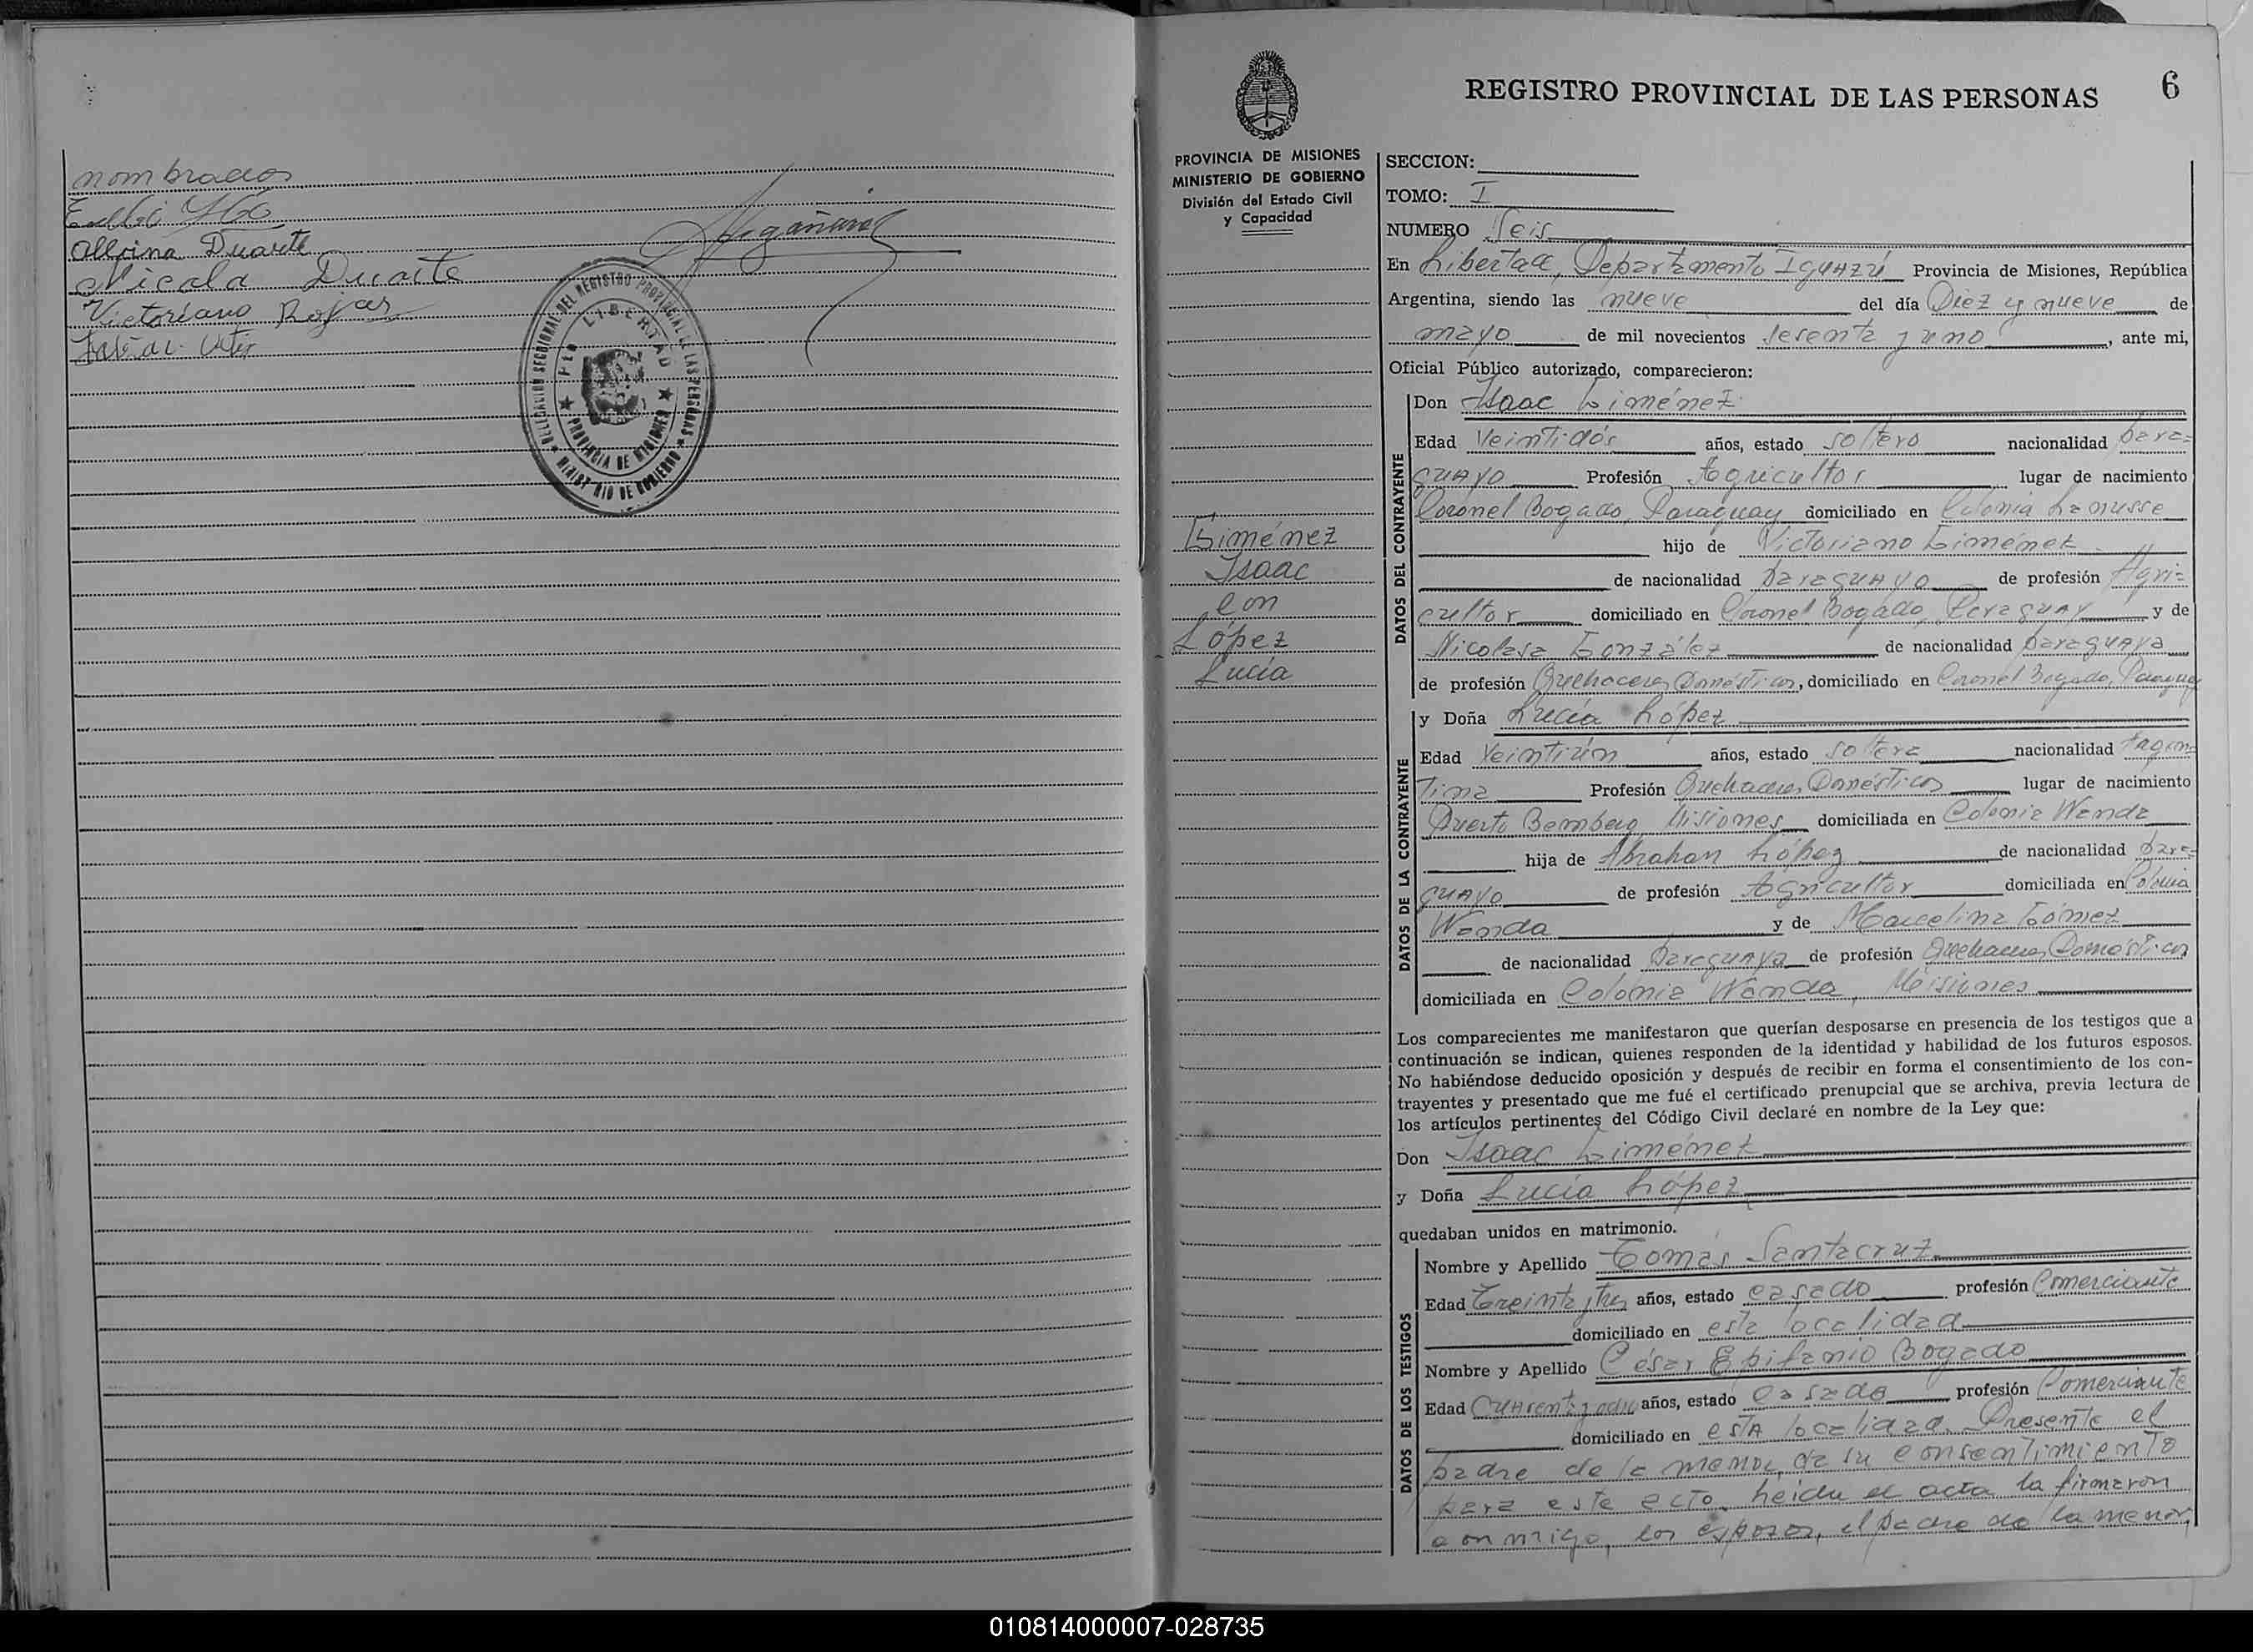 nombrados
Duarte
Nicola Duarte
Victoriano Rojas
DELEGACION SECCIONAL DEL REGISTRO PROVINCIAL DE LAS PERSONAS
LIBERTAD
PROVINCIA DE MISIONES
MINISTERIO DE GOBIERNO
REGISTRO PROVINCIAL DE LAS PERSONAS 6
PROVINCIA DE MISIONES
MINISTERIO DE GOBIERNO
División del Estado Civil
y Capacidad
Giménez
Isaac
con
López
Lucía
SECCION:
TOMO: I
NUMERO Seis
En Libertad, Departamento Iguazú Provincia de Misiones, República
Argentina, siendo las nueve del día Diez y nueve de
mayo de mil novecientos sesenta y uno, ante mi,
Oficial Público autorizado, comparecieron:
DATOS DEL CONTRAYENTE
Don Isaac Giménez
Edad Veintidós años, estado soltero nacionalidad para=
guayo Profesión Agricultor lugar de nacimiento
Coronel Bogado, Paraguay domiciliado en Colonia Lanusse
hijo de Victoriano Giménez
de nacionalidad paraguayo de profesión Agri=
cultor domiciliado en Coronel Bogado, Paraguay y de
Nicolasa González de nacionalidad paraguaya
de profesión Quehaceres Domésticos, domiciliado en Coronel Bogado, Paraguay
DATOS DE LA CONTRAYENTE
y Doña Lucía López
Edad Veintiún años, estado soltera nacionalidad Argen=
tina Profesión Quehaceres Domésticos lugar de nacimiento
Puerto Bemberg Misiones domiciliada en Colonia Wanda
hija de Abrahan López de nacionalidad para=
guayo de profesión Agricultor domiciliada en Colonia
Wanda y de Marcelina Gómez
de nacionalidad paraguaya de profesión Quehaceres Domésticos
domiciliada en Colonia Wanda, Misiones
Los comparecientes me manifestaron que querían desposarse en presencia de los testigos que a
continuación se indican, quienes responden de la identidad y habilidad de los futuros esposos.
No habiéndose deducido oposición y después de recibir en forma el consentimiento de los con-
trayentes y presentado que me fué el certificado prenupcial que se archiva, previa lectura de
los artículos pertinentes del Código Civil declaré en nombre de la Ley que:
Don Isaac Giménez
y Doña Lucía López
quedaban unidos en matrimonio.
DATOS DE LOS TESTIGOS
Nombre y Apellido Tomás Santacruz
Edad Treinta y tres años, estado casado profesión Comerciante
domiciliado en esta localidad
Nombre y Apellido César Epifanio Bogado
Edad Cuarenta y ocho años, estado casado profesión Comerciante
domiciliado en esta localidad. Presente el
padre de la menor, da su consentimiento
para este acto. Leída el acta la firmaron
conmigo, los esposos, el padre de la menor,
010814000007-028735